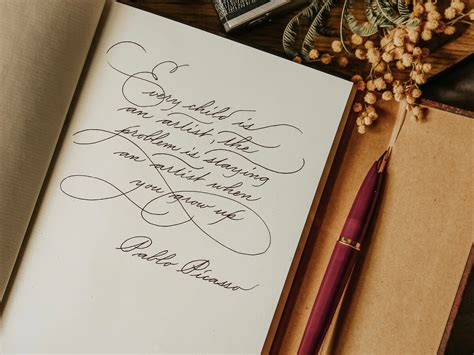 Every child is
an artist, the
problem is staying
an artist when
you grow up
Pablo Picasso